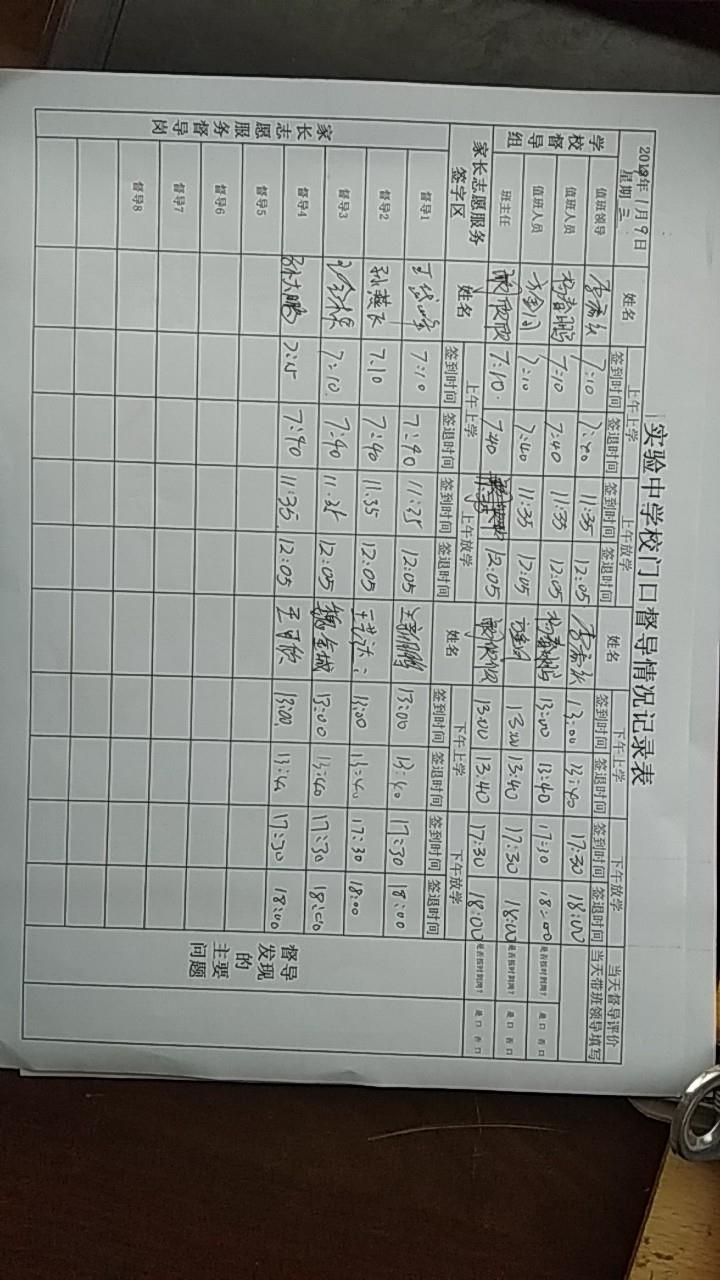 实验中学校门口督导情况记录表
2019年1月9日
星期三
姓名 上午上学 上午放学 姓名 下午上学 下午放学 当天督导评价
签到时间 签退时间 签到时间 签退时间 签到时间 签退时间 签到时间 签退时间 当天带班领导填写
学校督导组
值班领导 7:10 7:40 11:35 12:05 13:00 13:40 17:30 18:00
值班人员 7:10 7:40 11:35 12:05 13:00 13:40 17:30 18:00 是否按时到岗? 是□ 否□
值班人员 7:10 7:40 11:35 12:05 13:00 13:40 17:30 18:00 是否按时到岗? 是□ 否□
班主任 7:10 7:40 11:35 12:05 13:00 13:40 17:30 18:00 是否按时到岗? 是□ 否□
家长志愿服务
签字区
姓名 上午上学 上午放学 姓名 下午上学 下午放学
签到时间 签退时间 签到时间 签退时间 签到时间 签退时间 签到时间 签退时间
家长志愿服务督导岗
督导1 7:10 7:40 11:35 12:05 13:00 13:40 17:30 18:00
督导2 7:10 7:40 11:35 12:05 13:00 13:40 17:30 18:00
督导3 7:10 7:40 11:35 12:05 13:00 13:40 17:30 18:00
督导4 7:15 7:40 11:35 12:05 13:00 13:40 17:30 18:00
督导5
督导6
督导7
督导8
督导
发现
的
主要
问题